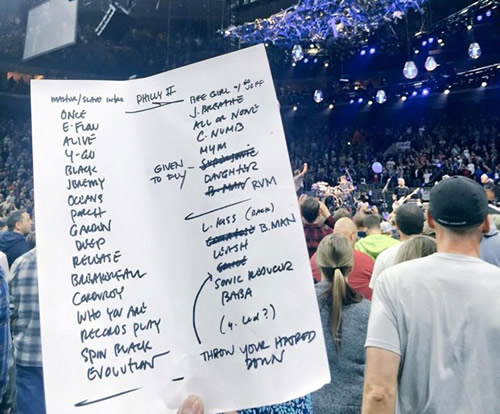 MASTER/SLAVE intro
PHILLY II
ONCE
E·FLOW
ALIVE
Y-GO
BLACK
JEREMY
OCEANS
PORCH
GARDEN
DEEP
RELEASE
BREAKERFALL
CORDUROY
WHO YOU ARE
RECORDS PLAY
SPIN BLACK
EVOLUTION
BEE GIRL w/ JEFF
J. BREATHE
ALL OR NONE
C. NUMB
MYM
GIVEN TO FLY
SUPERSONIC
DAUGHTER
B. MAN RVM
L. KISS
B. MAN
LEASH
SONIC REDUCER
BABA
(Y. Led?)
THROW YOUR HATRED
DOWN